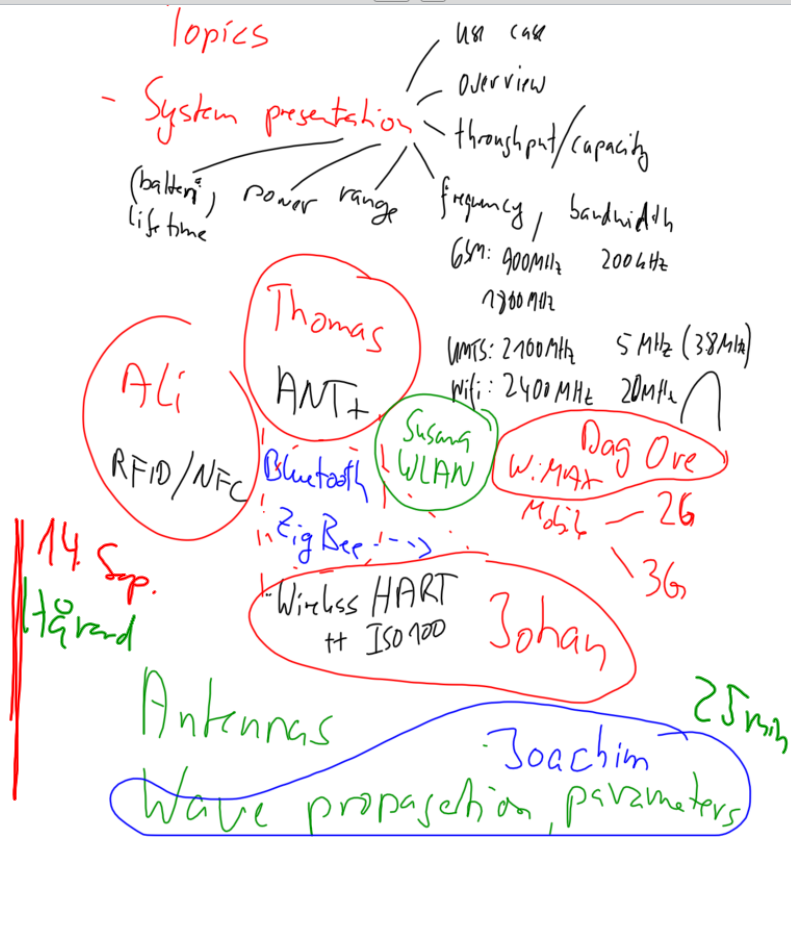 Topics
use case
overview
- System presentation
throughput/capacity
(batteri,
life time
power
range
frequency, bandwidth
GSM: 900MHz 200kHz
1800MHz
UMTS: 2100MHz 5MHz (3.8MHz)
Wifi: 2400MHz 20MHz
Thomas
ANT+
Ali
RFID/NFC
Susana
WLAN
Dag Ove
WiMAX
Mobile
2G
3G
Bluetooth
ZigBee
14. Sep.
Håvard
Wireless HART
++ ISO100
Johan
Antennas
25min
Joachim
Wave propagation, parameters